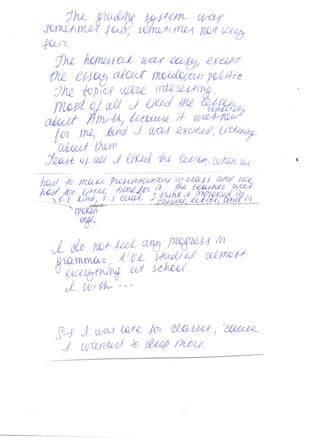 The grading system was
sometimes fair, sometimes not very
fair.
The homework was easy, except
the essay about moldovan politic.
The topics were interesting.
Most of all I liked the lesson
about Amish, because it was completely new
for me, and I was excited, listening
about them
Least of all I liked the lesson, when we
had to make presentation in class and we
had too little time for it. The teacher was
s-s kind, s-s cruel. I think I improved in
and in
spoken
engl.
I do not feel any progress in
grammar, I've studied almost
everything at school.
I wish ...
S-s I was late for classes, 'cause
I wanted to sleep more.